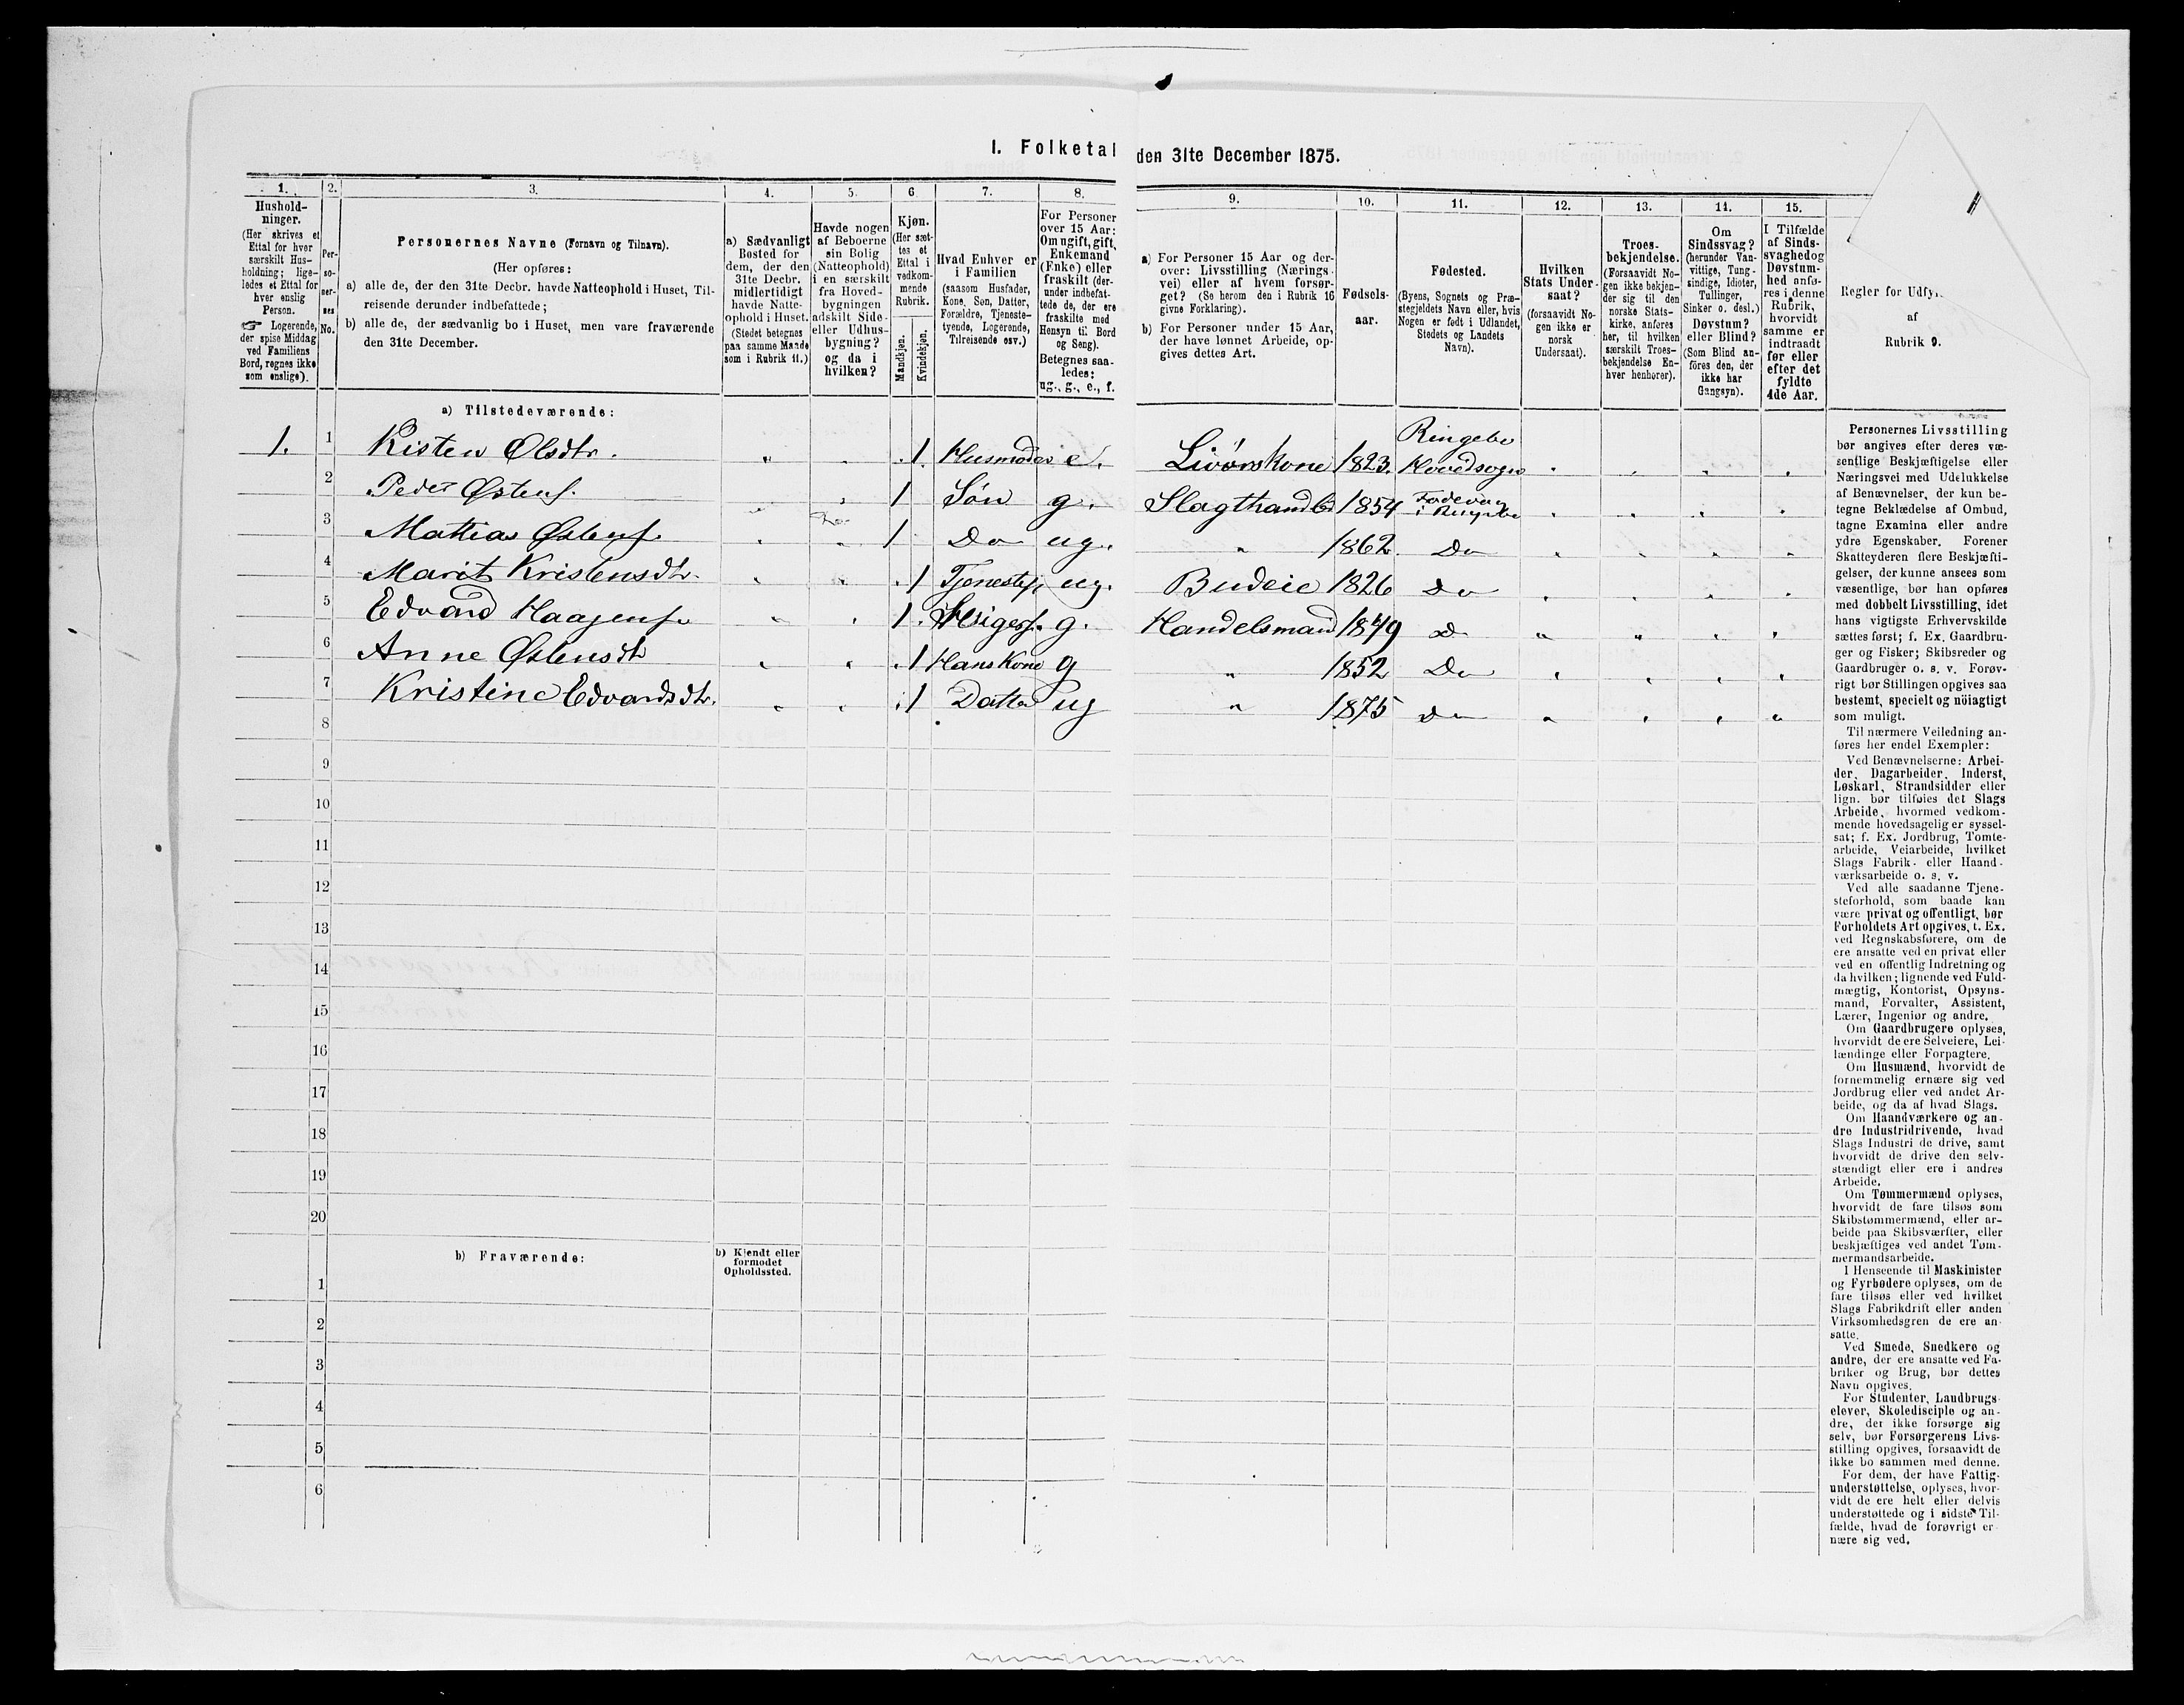 I. Folketal den 31te December 1875.
1. 2. 3. 4. 5. 6 7. 8. 9. 10. 11. 12. 13. 14. 15.
Hushold-
ninger.
(Her skrives et
Ettal for hver
særskilt Hus-
holdning; lige-
ledes et Ettal for
hver enslig
Person.
☞ Logerende,
der spise Middag
ved Familiens
Bord, regnes ikke
som enslige).
Per-
so-
ner-
nes
No.
Personernes Navne (Fornavn og Tilnavn).
(Her opføres:
a) alle de, der den 31te Decbr. havde Natteophold i Huset, Til-
reisende derunder indbefattede;
b) alle de, der sædvanlig bo i Huset, men vare fraværende
den 31te December.
a) Sædvanligt
Bosted for
dem, der den
31te Decbr.
midlertidigt
havde Natte-
ophold i Huset.
(Stedet betegnes
paa samme Maade
som i Rubrik 11.)
Havde nogen
af Beboerne
sin Bolig
(Natteophold)
i en særskilt
fra Hoved-
bygningen
adskilt Side-
eller Udhus-
bygning?
og da i
hvilken?
Kjøn.
(Her sæt-
tes et
Ettal i
vedkom-
mende
Rubrik.
Mandkjøn.
Kvindekjøn.
Hvad Enhver er
i Familien
(saasom Husfader,
Kone, Søn, Datter,
Forældre, Tjeneste-
tyende, Logerende,
Tilreisende osv.)
For Personer
over 15 Aar:
Om ugift, gift,
Enkemand
(Enke) eller
fraskilt (der-
under indbefat-
tede de, der ere
fraskilte med
Hensyn til Bord
og Seng).
Betegnes saa-
ledes:
ug., g., e., f.
a) For Personer 15 Aar og der-
over: Livsstilling (Nærings-
vei) eller af hvem forsør-
get? (Se herom den i Rubrik 16
givne Forklaring).
b) For Personer under 15 Aar,
der have lønnet Arbeide, op-
gives dettes Art.
Fødsels-
aar.
Fødested.
(Byens, Sognets og Præ-
stegjeldets Navn eller, hvis
Nogen er født i Udlandet,
Stedets og Landets
Navn).
Hvilken
Stats Under-
saat?
(forsaavidt No-
gen ikke er
norsk
Undersaat).
Troes-
bekjendelse.
(Forsaavidt No-
gen ikke bekjen-
der sig til den
norske Stats-
kirke, anføres
her, til hvilken
særskilt Troes-
bekjendelse En-
hver henhører).
Om
Sindssvag?
(herunder Van-
vittige, Tung-
sindige, Idioter,
Tullinger,
Sinker o. desl.)
Døvstum?
eller Blind?
(Som Blind an-
føres den, der
ikke har
Gangsyn).
I Tilfælde
af Sinds-
svaghed og
Døvstum-
hed anfø-
res i denne
Rubrik,
hvorvidt
samme er
indtraadt
før eller
efter det
fyldte
4de Aar.
Regler for Udfyl
af
Rubrik 9.
a) Tilstedeværende:
1. 1 Kisten Olsdtr. " 1 Husmoder e. Livørskone 1823. Ringebo Hovedsogn
2 Peder Østens. 1 Søn g. Slagthandler 1854 i Ringebo
3 Mathias Østens. 1 Do ug. " 1862. Do
4 Marit Kristensdtr. 1 Tjenestep. ug. Budeie 1826 Do
5 Edvard Haagens. 1 g. Handelsmand 1849 Do
6 Anne Østensdtr 1 Hans Kone g " 1852 Do
7 Kristine Edvardsdtr. 1 Datter ug " 1875 Do
8
9
10
11
12
13
14
15
16
17
18
19
20
b) Fraværende:
b) Kjendt eller
formodet
Opholdssted.
1
2
3
4
5
6
Personernes Livsstilling
bør angives efter deres væ-
sentlige Beskjæftigelse eller
Næringsvei med Udelukkelse
af Benævnelser, der kun be-
tegne Beklædelse af Ombud,
tagne Examina eller andre
ydre Egenskaber. Forener
Skatteyderen flere Beskjæfti-
gelser, der kunne ansees som
væsentlige, bør han opføres
med dobbelt Livsstilling, idet
hans vigtigste Erhvervskilde
sættes først; f. Ex. Gaardbru-
ger og Fisker; Skibsreder og
Gaardbruger o. s. v. Forøv-
rigt bør Stillingen opgives saa
bestemt, specielt og nöiagtigt
som muligt.
Til nærmere Veiledning an-
føres her endel Exempler:
Ved Benævnelserne: Arbei-
der, Dagarbeider, Inderst,
Løskarl, Strandsidder eller
lign. bør tilføies det Slags
Arbeide, hvormed vedkom-
mende hovedsagelig er syssel-
sat; f. Ex. Jordbrug, Tomte-
arbeide, Veiarbeide, hvilket
Slags Fabrik- eller Haand-
værksarbeide o. s. v.
Ved alle saadanne Tjene-
steforhold, som baade kan
være privat og offentligt, bør
Forholdets Art opgives, t. Ex.
ved Regnskabsførere, om de
ere ansatte ved en privat eller
ved en offentlig Indretning og
da hvilken; lignende ved Fuld-
mægtig, Kontorist, Opsyns-
mand, Forvalter, Assistent,
Lærer, Ingeniør og andre.
Om Gaardbrugere oplyses,
hvorvidt de ere Selveiere, Lei-
lændinge eller Forpagtere.
Om Husmænd, hvorvidt de
fornemmelig ernære sig ved
Jordbrug eller ved andet Ar-
beide, og da af hvad Slags.
Om Haandværkere og an-
dre Industridrivende, hvad
Slags Industri de drive, samt
hvorvidt de drive den selv-
stændigt eller ere i andres
Arbeide.
Om Tømmermænd oplyses,
hvorvidt de fare tilsøs som
Skibstømmermænd, eller ar-
beide paa Skibsværfter, eller
beskjæftiges ved andet Tøm-
mermandsarbeide.
I Henseende til Maskinister
og Fyrbødere oplyses, om de
fare tilsøs eller ved hvilket
Slags Fabrikdrift eller anden
Virksomhedsgren de ere an-
satte.
Ved Smede, Snedkere og
andre, der ere ansatte ved Fa-
briker og Brug, bør dettes
Navn opgives.
For Studenter, Landbrugs-
elever, Skoledisciple og an-
dre, der ikke forsørge sig
selv, bør Forsørgerens Livs-
stilling opgives, forsaavidt de
ikke bo sammen med denne.
For dem, der have Fattig-
understøttelse, oplyses, hvor-
vidt de ere helt eller delvis
understøttede og i sidste Til-
fælde, hvad de forøvrigt er-
nære sig ved.